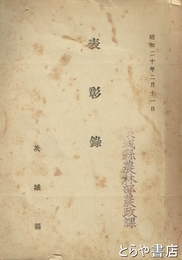 昭和二十年二月十一日
表彰錄
茨城縣農林部農政課
茨城縣
とらや書店